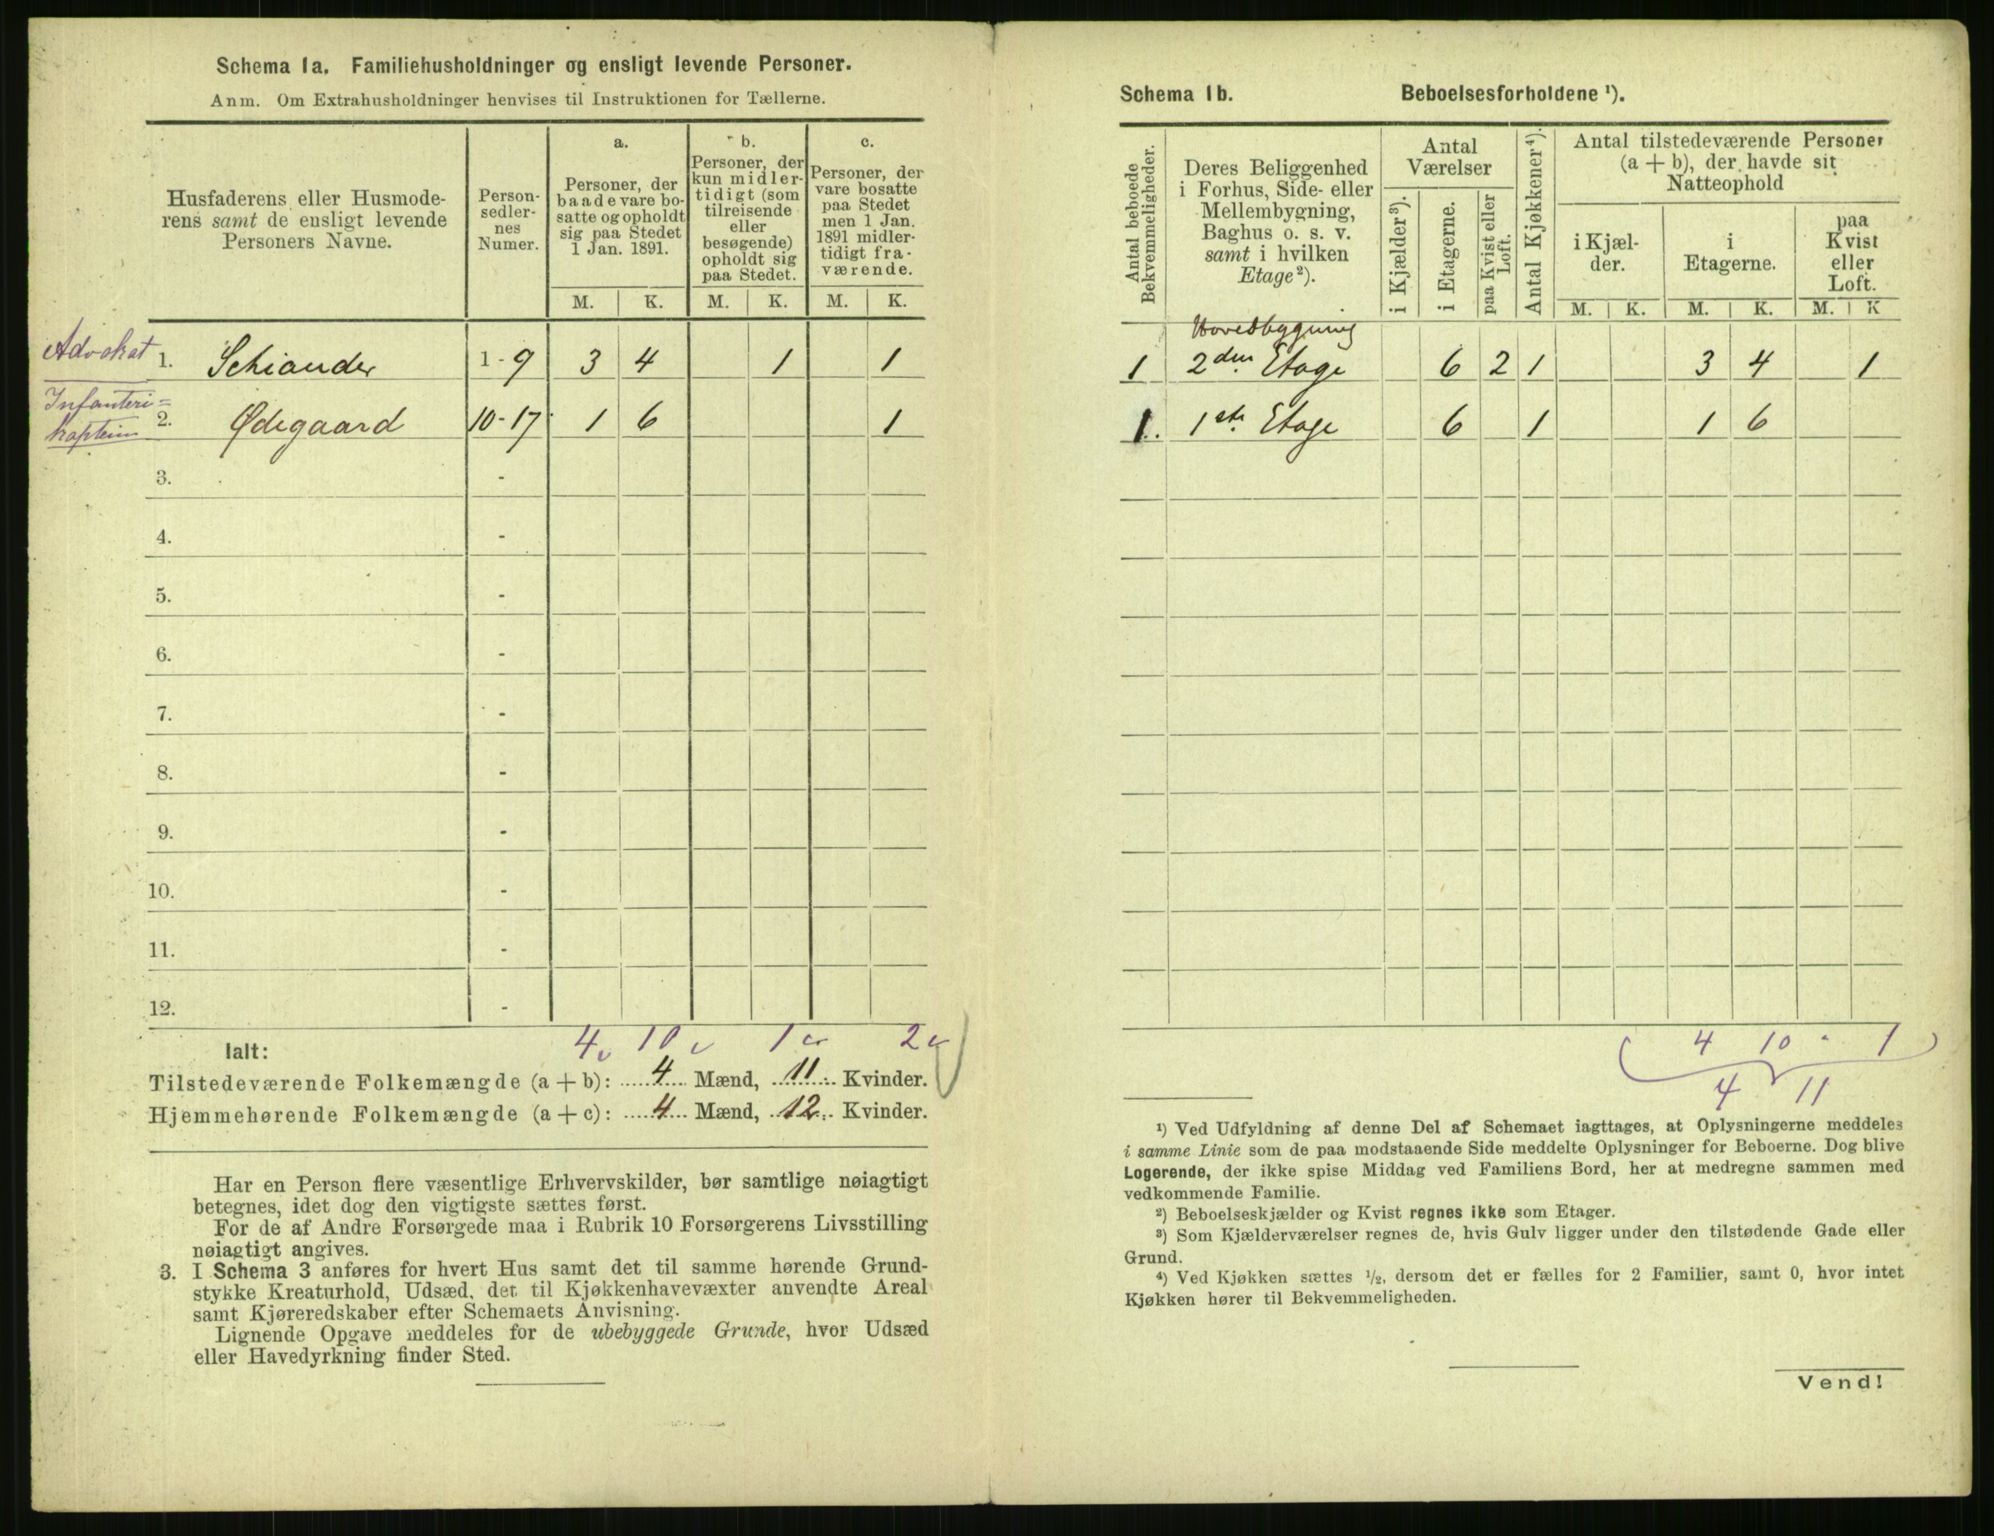 Schema 1a. Familiehusholdninger og ensligt levende Personer.
Anm. Om Extrahusholdninger henvises til Instruktionen for Tællerne.
Husfaderens eller Husmoderens samt de ensligt levende Personers Navne.
Personsedlernes Numer.
a.
Personer, der baade vare bosatte og opholdt sig paa Stedet 1 Jan. 1891.
b.
Personer, der kun midlertidigt (som tilreisende eller besøgende) opholdt sig paa Stedet.
c.
Personer, der vare bosatte paa Stedet men 1 Jan. 1891 midlertidigt fraværende.
M. K. M. K. M. K.
Advokat 1. Schiander 1-9 3 4 1 1
Infanteri=
kaptein 2. Ødegaard 10-17 1 6 1
3. -
4. -
5. -
6. -
7. -
8. -
9. -
10. -
11. -
12. -
Ialt: 4 10 1 2
Tilstedeværende Folkemængde (a+b): 4 Mænd, 11 Kvinder.
Hjemmehørende Folkemængde (a+c): 4 Mænd, 12 Kvinder.
Har en Person flere væsentlige Erhvervskilder, bør samtlige nøiagtigt
betegnes, idet dog den vigtigste sættes først.
For de af Andre Forsørgede maa i Rubrik 10 Forsørgerens Livsstilling
nøiagtigt angives.
3. I Schema 3 anføres for hvert Hus samt det til samme hørende Grund-
stykke Kreaturhold, Udsæd, det til Kjøkkenhavevæxter anvendte Areal
samt Kjøreredskaber efter Schemaets Anvisning.
Lignende Opgave meddeles for de ubebyggede Grunde, hvor Udsæd
eller Havedyrkning finder Sted.
Schema 1b. Beboelsesforholdene ¹).
Antal beboede Bekvemmeligheder.
Deres Beliggenhed i Forhus, Side- eller Mellembygning, Baghus o. s. v. samt i hvilken Etage²).
Antal Værelser
i Kjælder³).
i Etagerne.
paa Kvist eller Loft.
Antal Kjøkkener⁴).
Antal tilstedeværende Personer (a+b), der havde sit Natteophold
i Kjælder.
i Etagerne.
paa Kvist eller Loft.
M. K. M. K. M. K
Hovedbygning
1 2den Etage 6 2 1 3 4 1
1. 1ste Etage 6 1 1 6
4 10 1
4 11
¹) Ved Udfyldning af denne Del af Schemaet iagttages, at Oplysningerne meddeles
i samme Linie som de paa modstaaende Side meddelte Oplysninger for Beboerne. Dog blive
Logerende, der ikke spise Middag ved Familiens Bord, her at medregne sammen med
vedkommende Familie.
²) Beboelseskjælder og Kvist regnes ikke som Etager.
³) Som Kjælderværelser regnes de, hvis Gulv ligger under den tilstødende Gade eller
Grund.
⁴) Ved Kjøkken sættes ½, dersom det er fælles for 2 Familier, samt 0, hvor intet
Kjøkken hører til Bekvemmeligheden.
Vend!